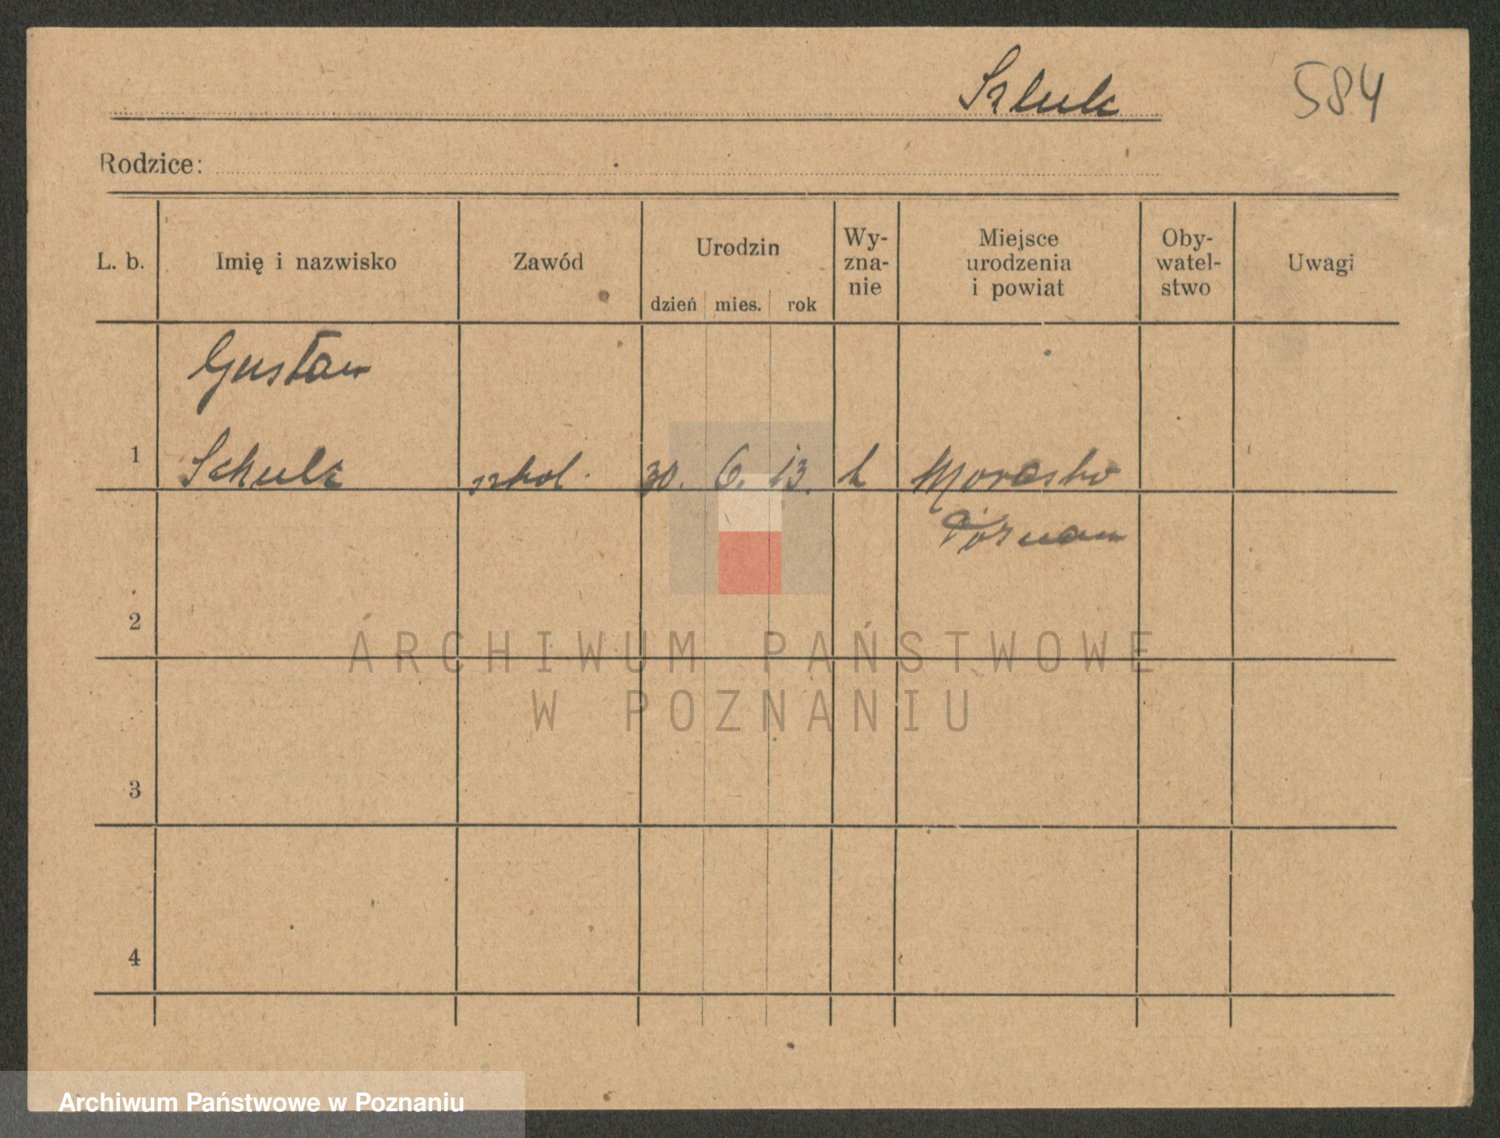 Szlulc 584
Rodzice:
L. b. Imię i nazwisko Zawód Urodzin dzień mies. rok Wy-zna-nie Miejsce urodzenia i powiat Oby-watel-stwo Uwagi
Gustaw
1 Schulz szkol. 30. 6. 13. k Morasko
Poznań
2
ARCHIWUM PAŃSTWOWE
W POZNANIU
3
4
Archiwum Państwowe w Poznaniu